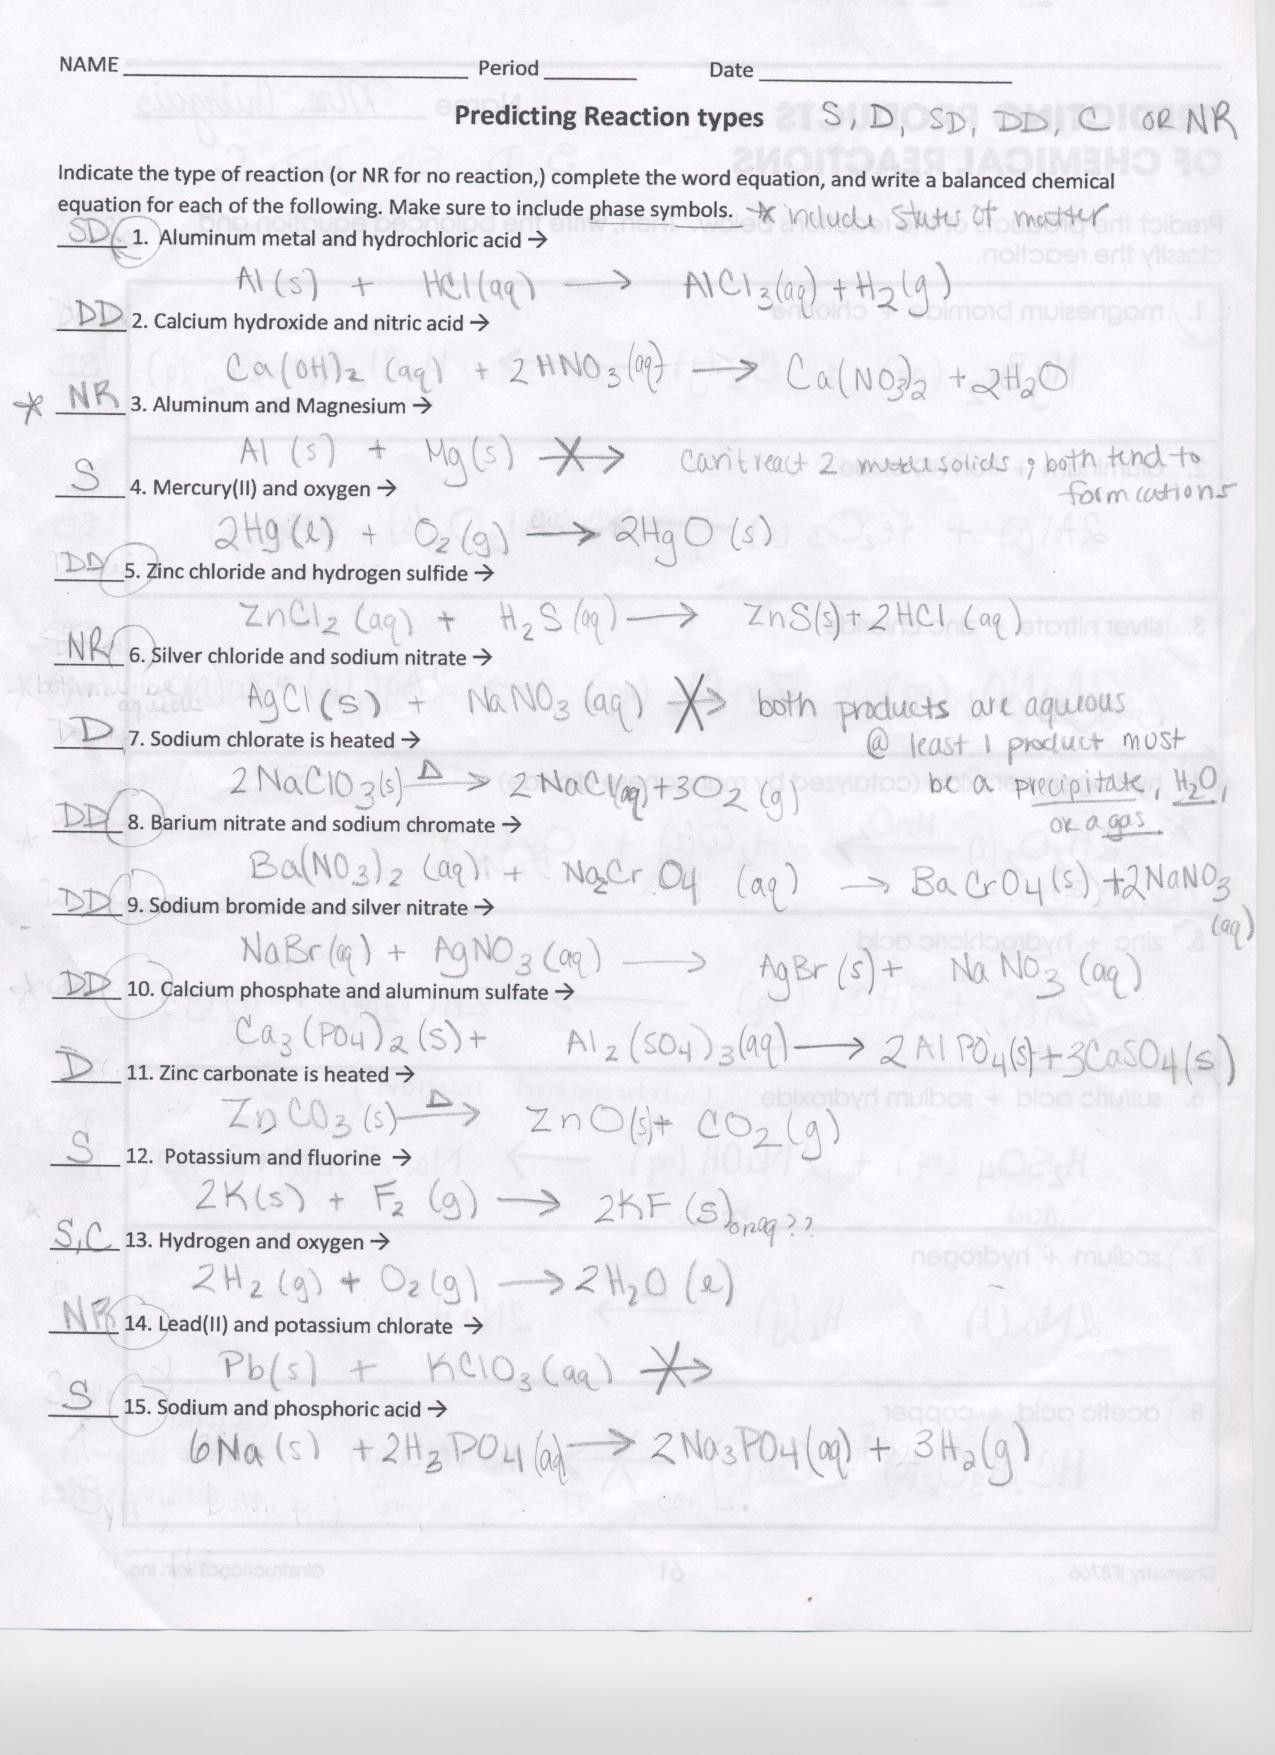 NAME Period Date
Predicting Reaction types S, D, SD, DD, C OR NR
Indicate the type of reaction (or NR for no reaction,) complete the word equation, and write a balanced chemical
equation for each of the following. Make sure to include phase symbols. * include states of matter
SD 1. Aluminum metal and hydrochloric acid →
Al (s) + HCl (aq) → AlCl3 (aq) + H2 (g)
DD 2. Calcium hydroxide and nitric acid →
Ca(OH)2 (aq) + 2HNO3 (aq) → Ca(NO3)2 + 2H2O
* NR 3. Aluminum and Magnesium →
Al (s) + Mg (s) → can't react 2 solids, both tend to
form cations
S 4. Mercury(II) and oxygen →
2Hg (l) + O2 (g) → 2HgO (s)
DD 5. Zinc chloride and hydrogen sulfide →
ZnCl2 (aq) + H2S (aq) → ZnS(s) + 2HCl (aq)
NR 6. Silver chloride and sodium nitrate →
AgCl (s) + NaNO3 (aq) → both products are aqueous
@ least 1 product must
D 7. Sodium chlorate is heated →
2NaClO3(s) Δ→ 2NaCl(aq) + 3O2 (g) be a precipitate, H2O,
or a gas.
DD 8. Barium nitrate and sodium chromate →
Ba(NO3)2 (aq) + Na2CrO4 (aq) → BaCrO4 (s) + 2NaNO3
(aq)
DD 9. Sodium bromide and silver nitrate →
NaBr (aq) + AgNO3 (aq) → AgBr (s) + NaNO3 (aq)
DD 10. Calcium phosphate and aluminum sulfate →
Ca3(PO4)2 (s) + Al2(SO4)3 (aq) → 2AlPO4(s) + 3CaSO4(s)
D 11. Zinc carbonate is heated →
ZnCO3 (s) Δ→ ZnO(s) + CO2 (g)
S 12. Potassium and fluorine →
2K(s) + F2 (g) → 2KF (s) or aq??
S,C 13. Hydrogen and oxygen →
2H2 (g) + O2 (g) → 2H2O (l)
NR 14. Lead(II) and potassium chlorate →
Pb (s) + KClO3 (aq) →
S 15. Sodium and phosphoric acid →
6Na (s) + 2H3PO4 (aq) → 2Na3PO4 (aq) + 3H2 (g)